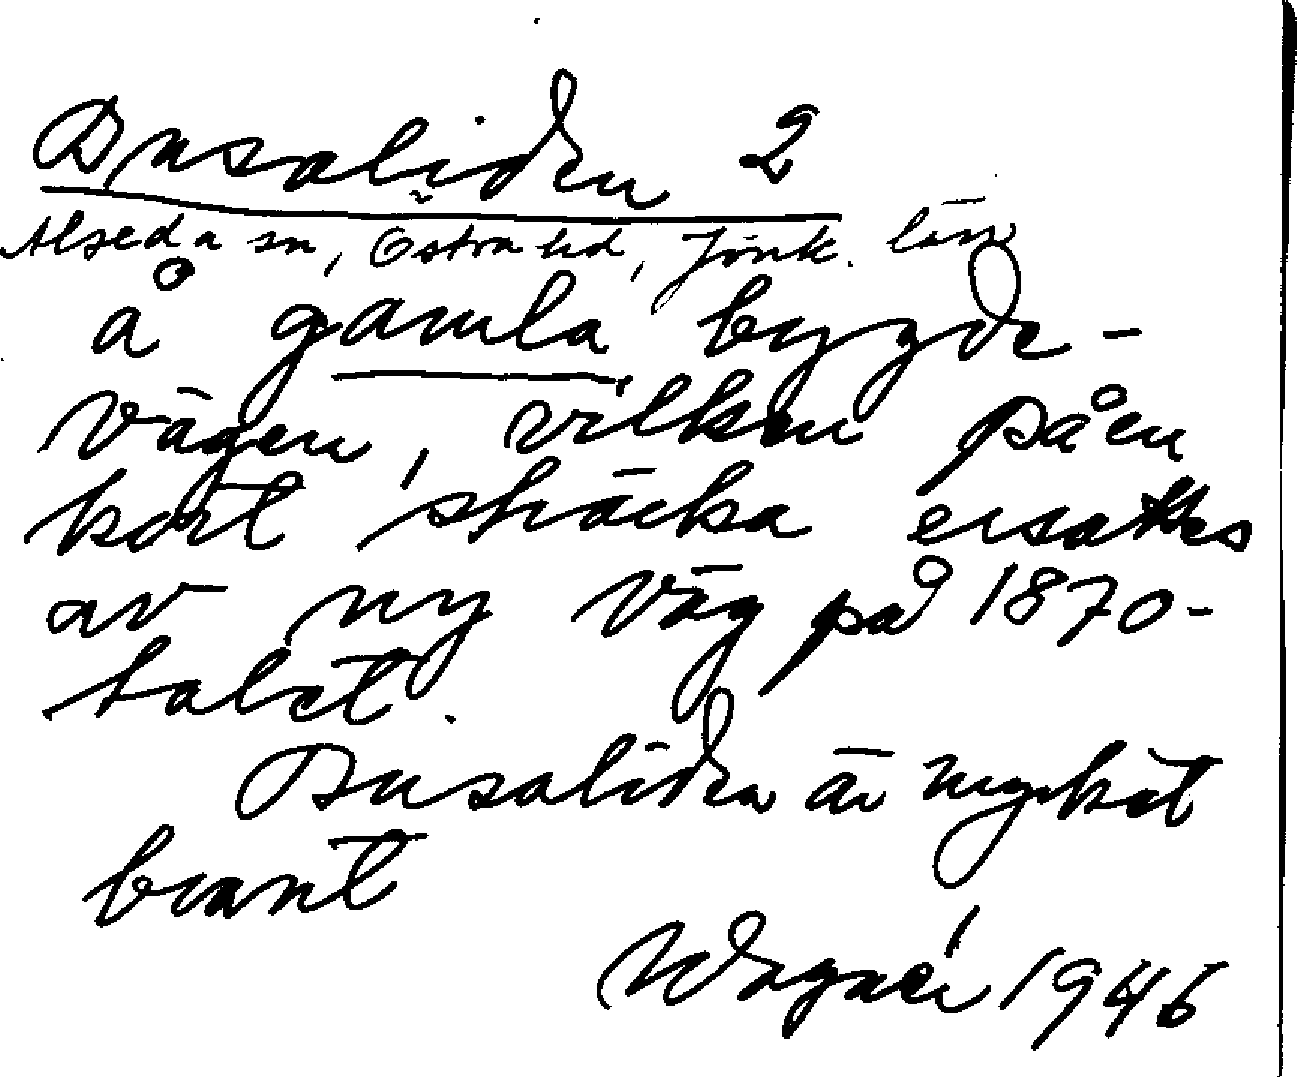 Dusaliden 2
Alseda sn, Östra hd, Jönk. län
å gamla bygde-
vägen, vilken på en
kort sträcka ersattes
av ny väg på 1870-
talet.
Dusaliden är mycket
brant
1946